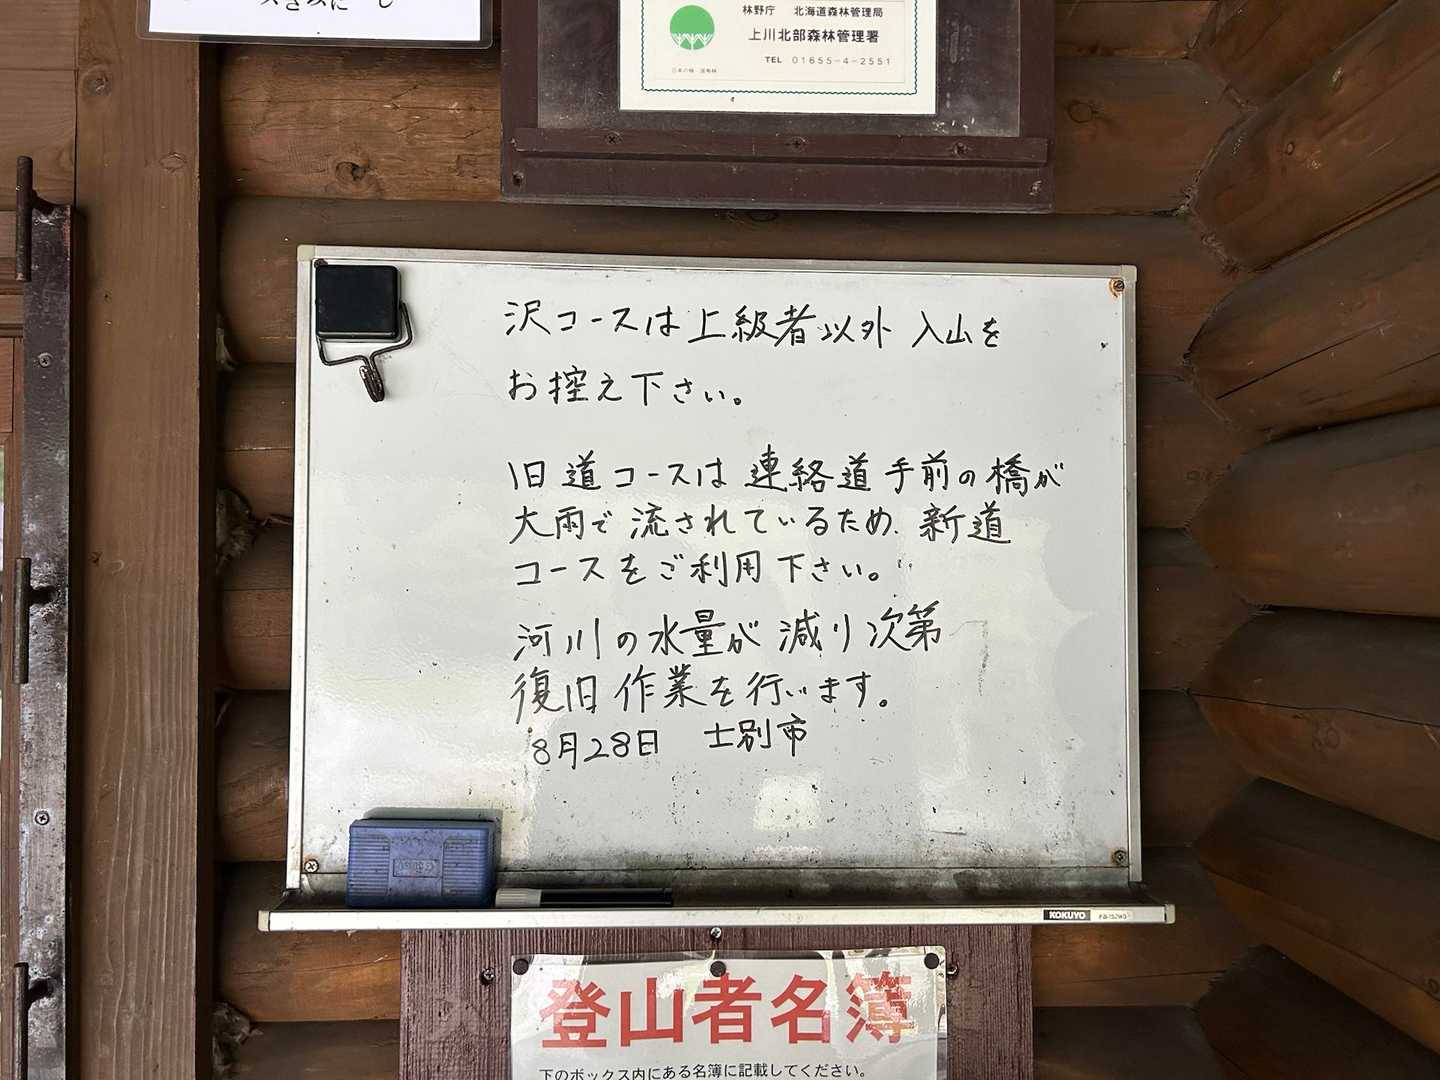 林野庁 北海道森林管理局
上川北部森林管理署
TEL 01655-4-2551
沢コースは上級者以外 入山を
お控え下さい。
旧道コースは連絡道手前の橋が
大雨で流されているため、新道
コースをご利用下さい。
河川の水量が減り次第
復旧作業を行います。
8月28日 士別市
KOKUYO
登山者名簿
下のボックス内にある名簿に記載してください。